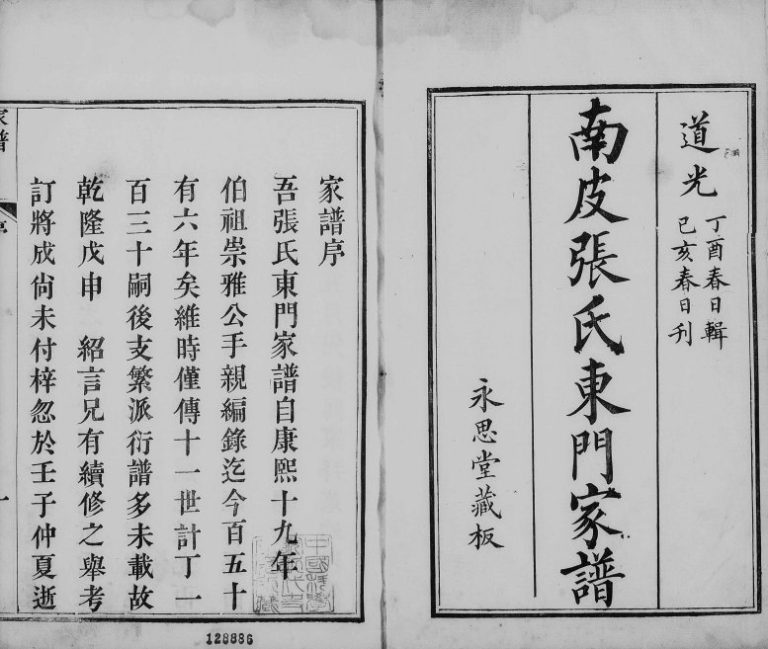 道光
丁酉春日輯
己亥春日刊
南皮張氏東門家譜
永思堂藏板
家譜序
吾張氏東門家譜自康熙十九年
伯祖崇雅公手親編錄迄今百五十
有六年矣維時僅傳十一世計丁一
百三十嗣後支繁派衍譜多未載故
乾隆戊申 紹言兄有續修之舉考
訂將成尙未付梓忽於壬子仲夏逝
家譜
序
一
128886